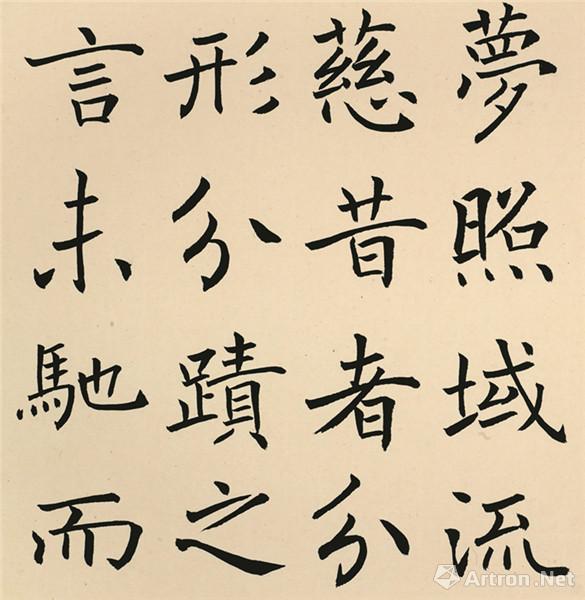 夢照域流
慈昔者分
形分蹟之
言未馳而
Artron.Net